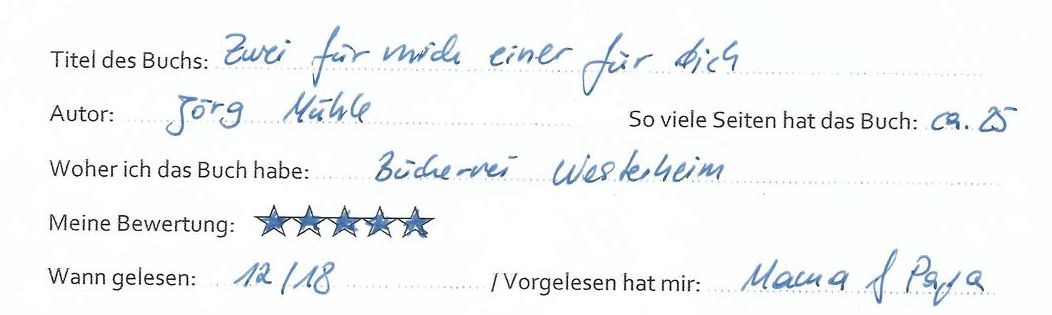 Titel des Buchs: Zwei für mich einer für dich
Autor: Jörg Mühle So viele Seiten hat das Buch: ca. 25
Woher ich das Buch habe: Bücherei Westerheim
Meine Bewertung:
Wann gelesen: 12/18 / Vorgelesen hat mir: Mama & Papa